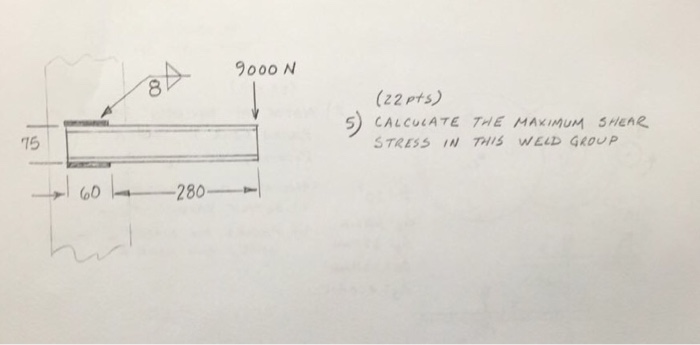 9000 N
8
(22 pts)
5) CALCULATE THE MAXIMUM SHEAR
STRESS IN THIS WELD GROUP
75
60
280